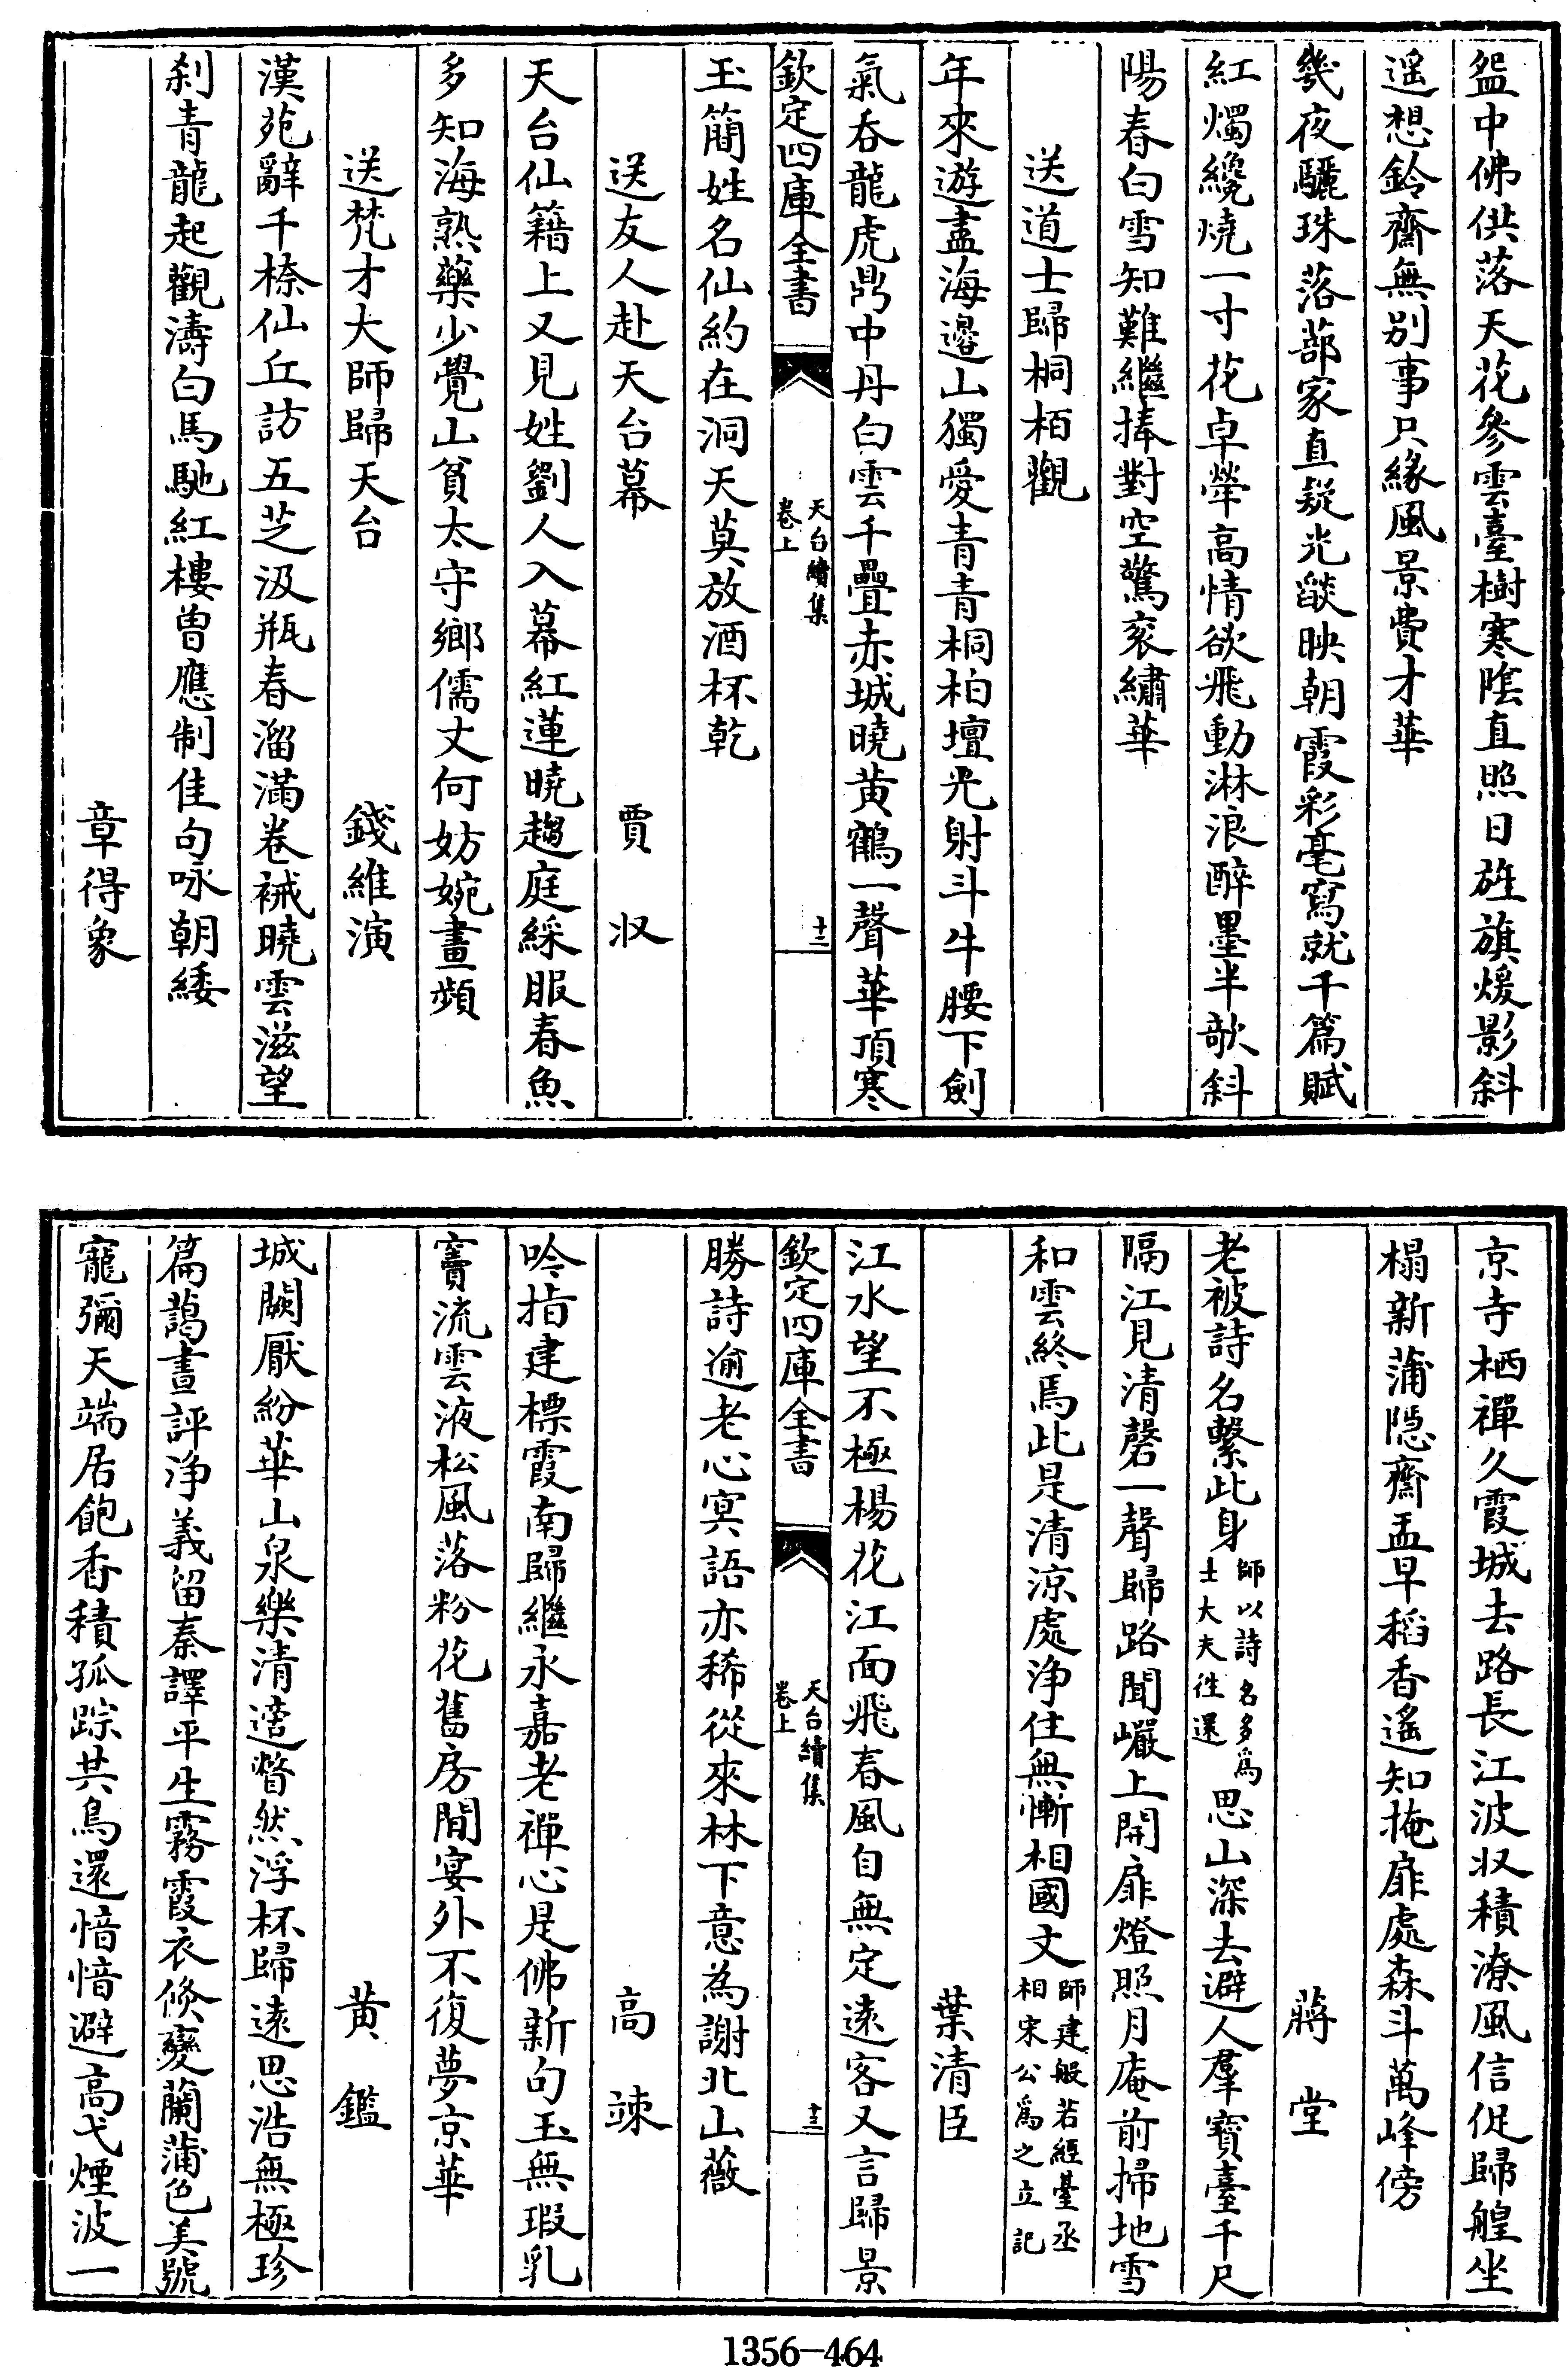 盌中佛供落天花參雲臺樹寒陰直照日旌旗煖影斜
遥想鈴齋無别事只緣風景費才華
幾夜驪珠落蔀家直疑光燄映朝霞彩毫寫就千篇賦
紅燭纔燒一寸花卓犖高情欲飛動淋浪醉墨半欹斜
陽春白雪知難繼捧對空驚衮繡華
送道士歸桐栢觀
年來遊盡海邊山獨愛青青桐柏壇光射斗牛腰下劍
氣吞龍虎鼎中丹白雲千疊赤城曉黄鶴一聲華頂寒
欽定四庫全書 天台續集 卷上 十二
玉簡姓名仙約在洞天莫放酒杯乾
送友人赴天台幕 賈收
天台仙籍上又見姓劉人入幕紅蓮曉趨庭綵服春魚
多知海熟藥少覺山貧太守鄉儒丈何妨婉畫頻
送梵才大師歸天台 錢維演
漢苑辭千㮈仙丘訪五芝汲瓶春溜滿卷裓曉雲滋望
刹青龍起觀濤白馬馳紅樓曽應制佳句咏朝緌
章得象
京寺栖禪久霞城去路長江波收積潦風信促歸艎坐
榻新蒲隱齋盂早稻香遥知掩扉處森斗萬峰傍
蔣堂
老被詩名繫此身師以詩名多爲士大夫徃還思山深去避人羣寳臺千尺
隔江見清磬一聲歸路聞巘上開扉燈照月庵前掃地雪
和雲終焉此是清涼處浄住無慚相國文師建般若經臺丞相宋公爲之立記
葉清臣
江水望不極楊花江面飛春風自無定遠客又言歸景
欽定四庫全書 天台續集 卷上 十三
勝詩逾老心㝠語亦稀從來林下意為謝北山薇
高竦
吟指建標霞南歸繼永嘉老禪心是佛新句玉無瑕乳
竇流雲液松風落粉花舊房閒宴外不復夢京華
黄鑑
城闕厭紛華山泉樂清邃瞥然浮杯歸遠思浩無極珍
篇藹晝評浄義留秦譯平生霧霞衣倐變蘭蒲色美號
寵彌天端居飽香積孤踪共鳥還愔愔避高弋煙波一
1356—464